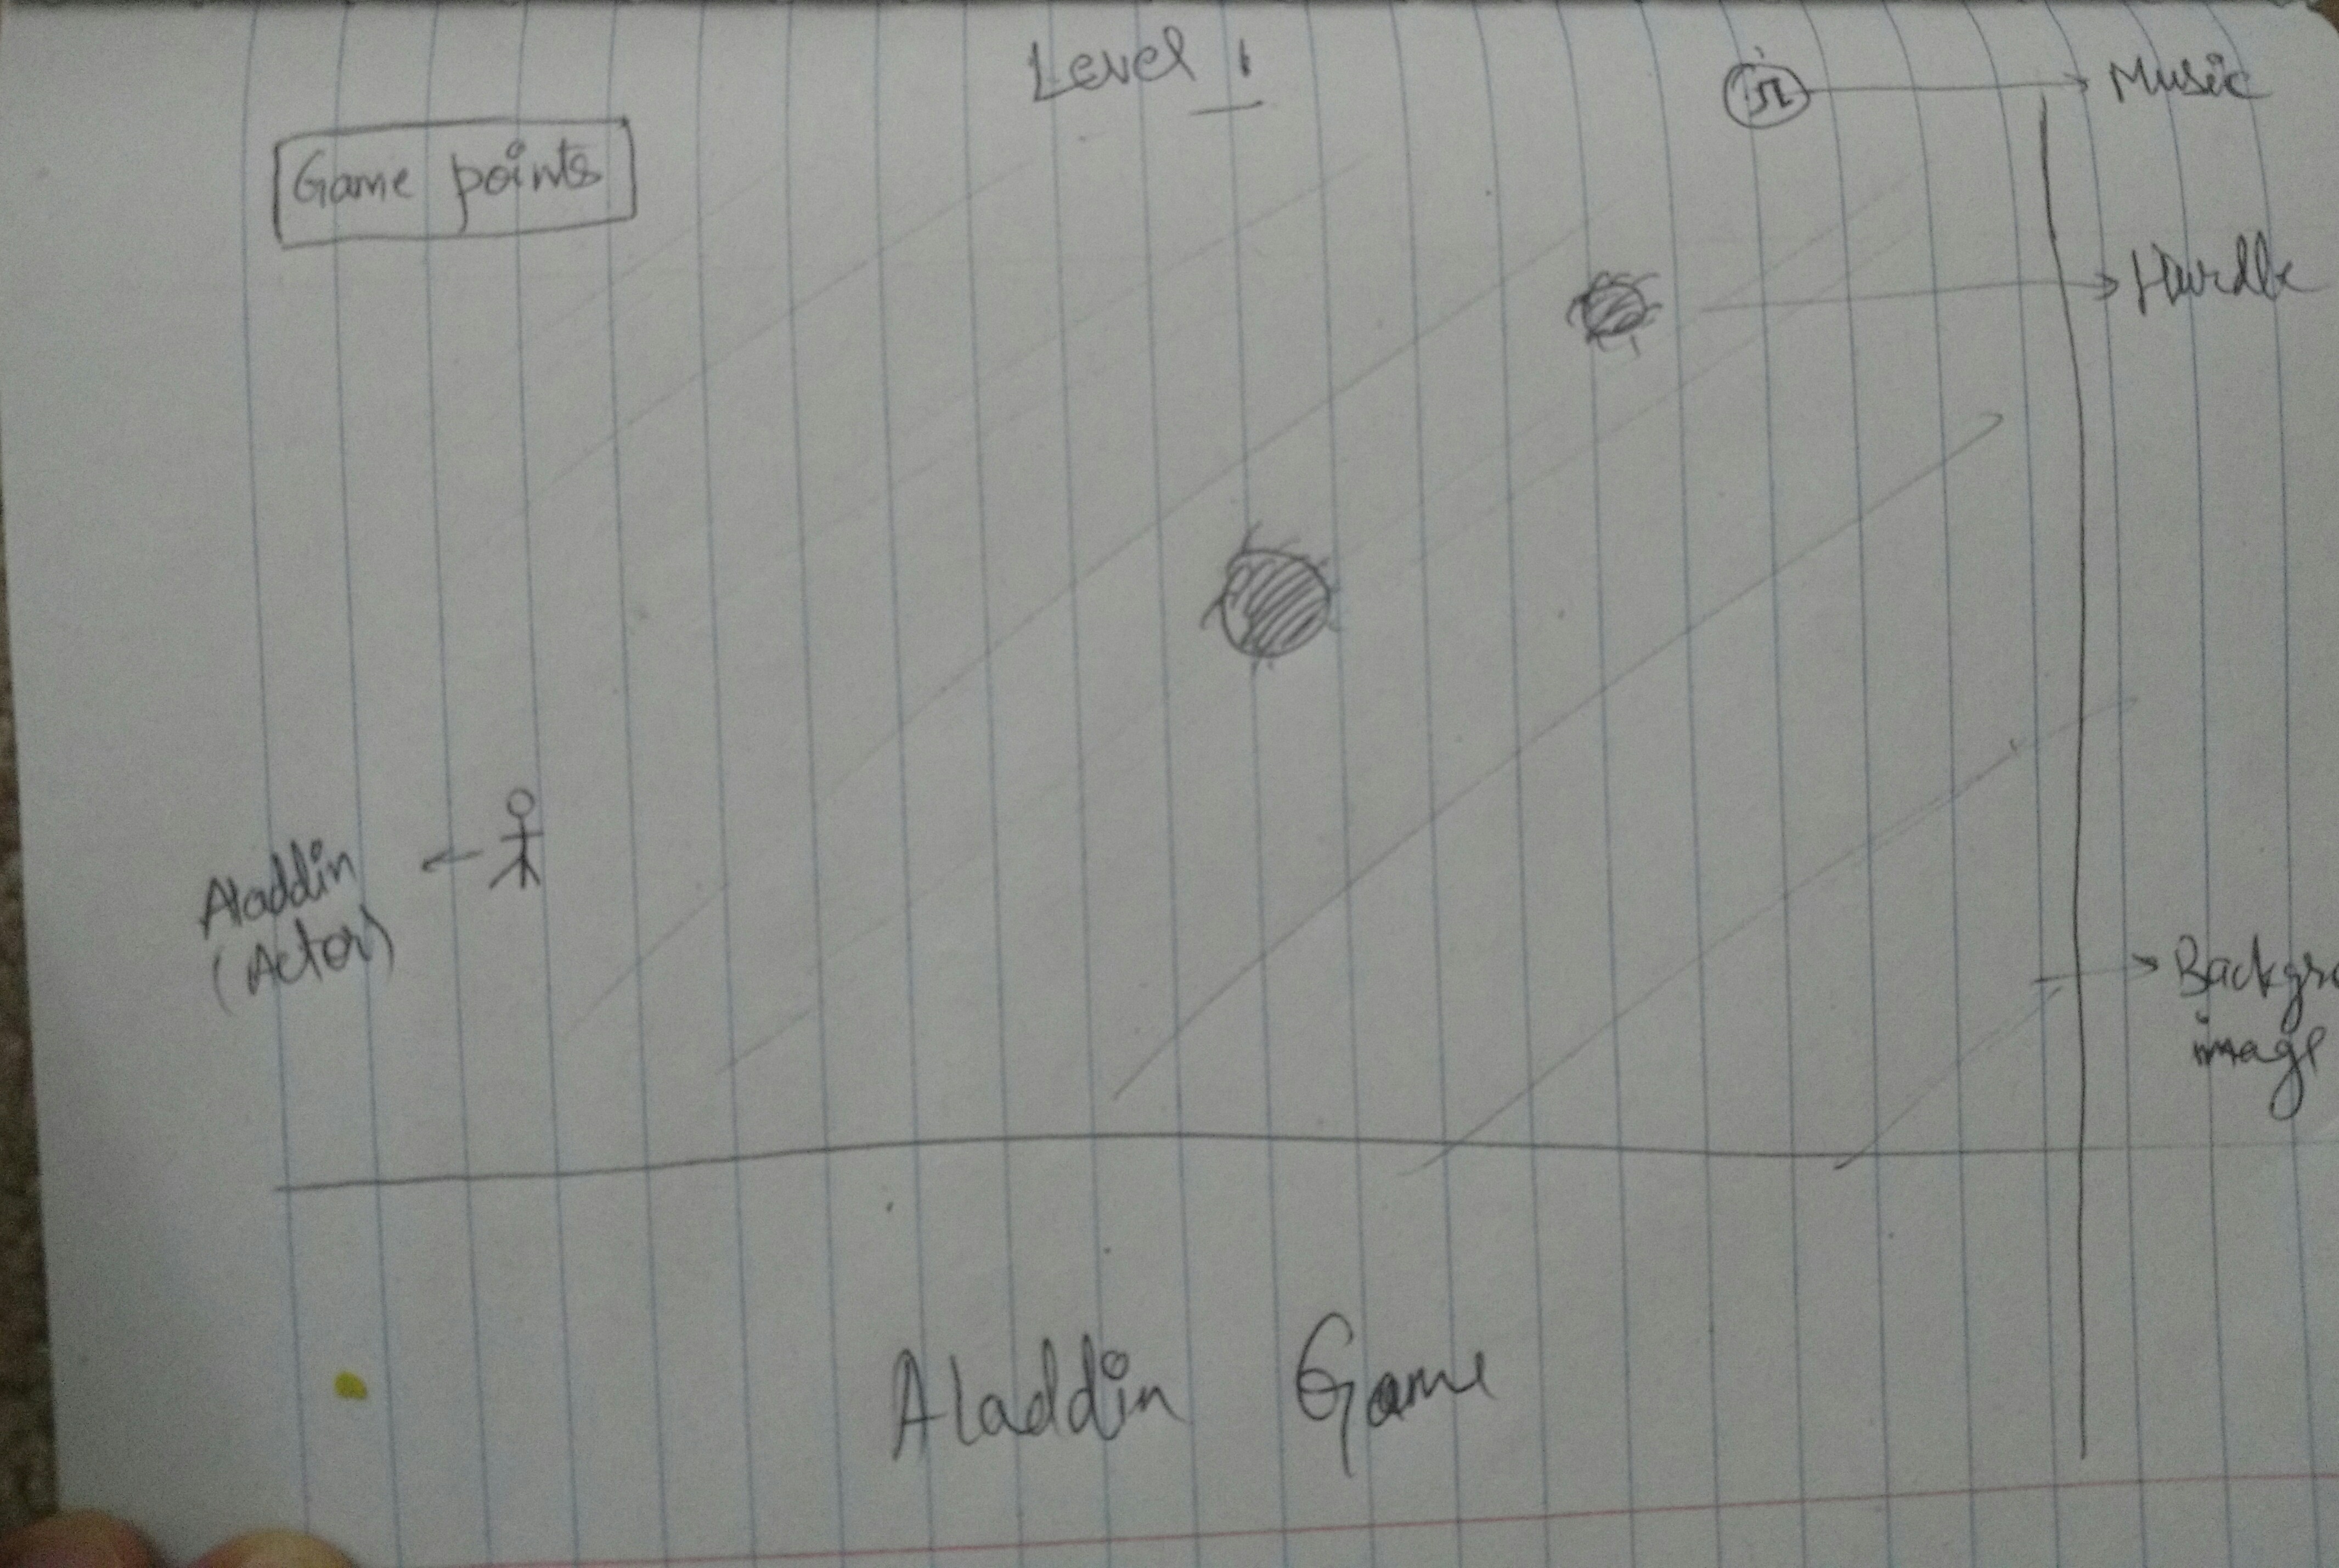 Level 1
Music
Game points
Hurdle
Aladdin
(Actor)
Backgro
image
Aladdin Game